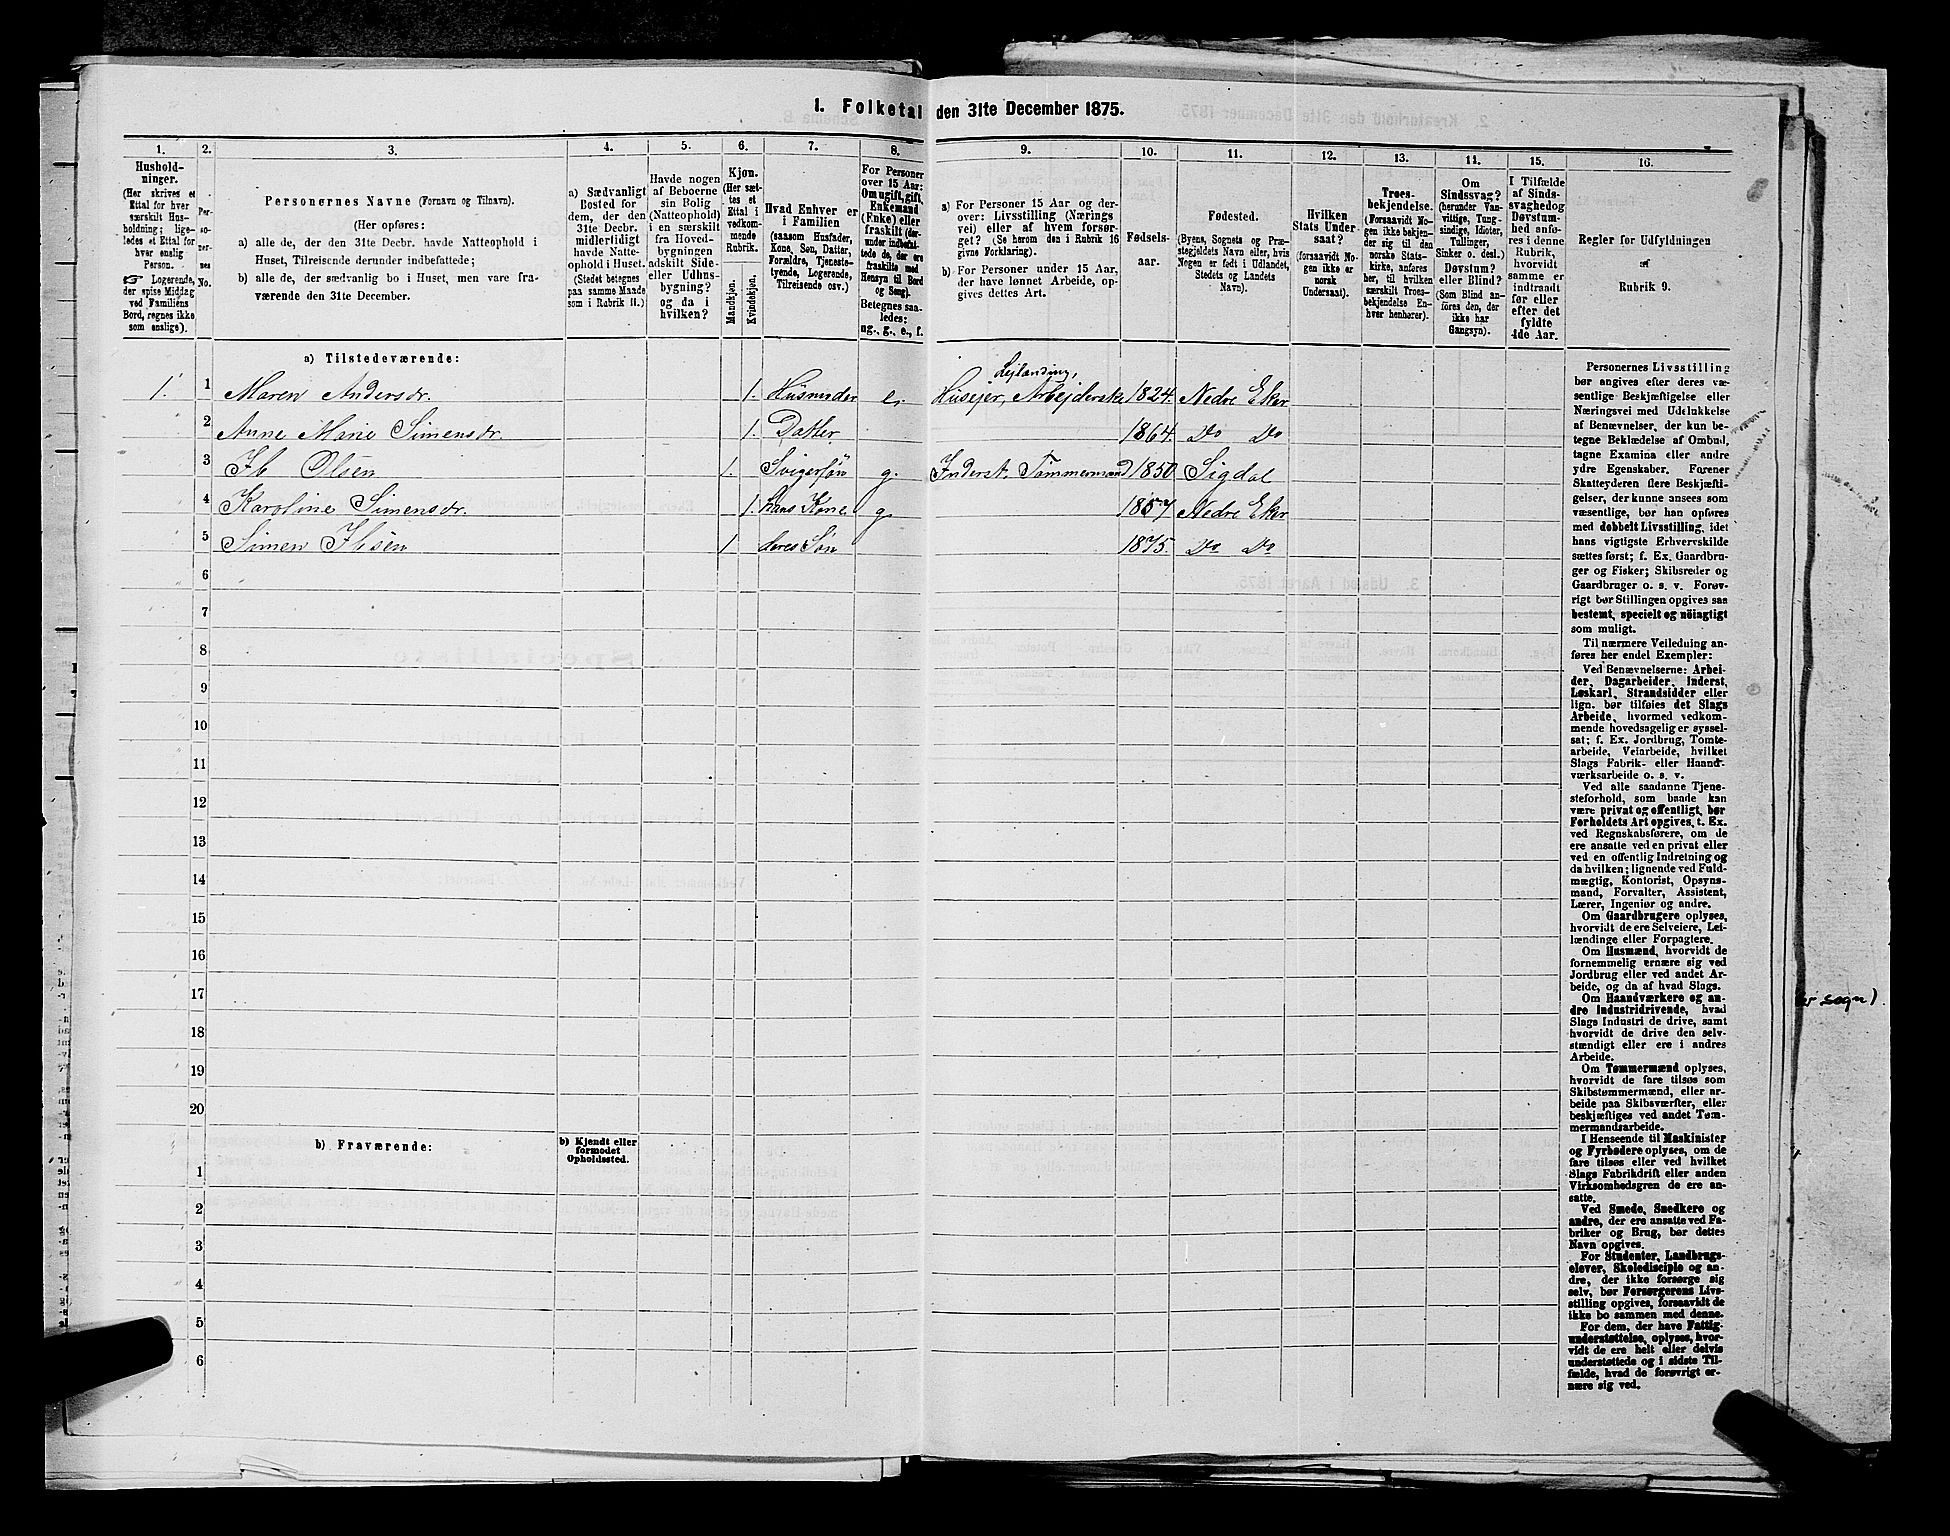 1. Folketal den 31te December 1875.
1.
2.
3.
4.
5.
6.
7.
8.
9.
10.
11.
12.
13.
14.
15.
16.
Hushold-
ninger.
(Her skrives et
Ettal for hver
særskilt Hus-
holdning; lige-
ledes et Ettal for
hver enslig
Person.
☞ Logerende,
der spise Middag
ved Familiens
Bord, regnes ikke
som enslige).
Per-
so-
ner-
nes
No.
Personernes Navne (Fornavn og Tilnavn).
(Her opføres:
a) alle de, der den 31te Decbr. havde Natteophold i
Huset, Tilreisende derunder indbefattede;
b) alle de, der sædvanlig bo i Huset, men vare fra-
værende den 31te December.
a) Sædvanligt
Bosted for
dem, der den
31te Decbr.
midlertidigt
havde Natte-
ophold i Huset.
(Stedet betegnes
paa samme Maade
som i Rubrik 11.)
Havde nogen
af Beboerne
sin Bolig
(Natteophold)
i en særskilt
fra Hoved-
bygningen
adskilt Side-
eller Udhus-
bygning?
og da i
hvilken?
Kjøn.
(Her sæt-
tes et
Ettal i
vedkom-
mende
Rubrik.
Mandkjøn.
Kvindekjøn.
Hvad Enhver er
i Familien
(saasom Husfader,
Kone, Søn, Datter,
Forældre, Tjeneste-
tyende, Logerende,
Tilreisende osv.)
For Personer
over 15 Aar:
Om ugift, gift,
Enkemand
(Enke) eller
fraskilt (der-
under indbefat-
tede de, der ere
fraskilte med
Hensyn til Bord
og Seng).
Betegnes saa-
ledes:
ug., g., e., f.
a) For Personer 15 Aar og der-
over: Livsstilling (Nærings
vei) eller af hvem forsør-
get? (Se herom den i Rubrik 16
givne Forklaring).
b) For Personer under 15 Aar,
der have lønnet Arbeide, op-
gives dettes Art.
Fødsels-
aar.
Fødested.
(Byens, Sognets og Præ-
stegjeldets Navn eller, hvis
Nogen er født i Udlandet,
Stedets og Landets
Navn).
Hvilken
Stats Under-
saat?
(forsaavidt No-
gen ikke er
norsk
Undersaat).
Troes-
bekjendelse.
(Forsaavidt No-
gen ikke bekjen-
der sig til den
norske Stats-
kirke, anføres
her, til hvilken
særskilt Troes-
bekjendelse En-
hver henhører).
Om
Sindssvag?
(herunder Van-
vittige, Tung-
sindige, Idioter,
Tullinger,
Sinker o. desl.).
Døvstum?
eller Blind?
(Som Blind an-
føres den, der
ikke har
Gangsyn).
I Tilfælde
af Sinds-
svaghed og
Døvstum-
hed anfø-
res i denne
Rubrik,
hvorvidt
samme er
indtraadt
før eller
efter det
fyldte
4de Aar.
Regler for Udfyldningen
af
Rubrik 9.
a) Tilstedeværende:
Lejlænding,
1. 1 Maren Andersdr. 1. Husmoder e. Husejer, Arbejderske 1824. Nedre Eker
2 Anne Marie Simensdr. 1. Datter 1864. Do Do
3 Ib Olsen 1. Svigersøn g. Inderst. Tømmermand 1850 Sigdal
4 Karoline Simensdr. 1. hans Kone g. 1857 Nedre Eker
5 Simen Ibsen 1 deres Søn 1875. Do Do
6
7
8
9
10
11
12
13
14
15
16
17
18
19
20
b) Fraværende:
b) Kjendt eller
formodet
Opholdssted.
1
2
3
4
5
6
Personernes Livsstilling
bør angives efter deres væ-
sentlige Beskjæftigelse eller
Næringsvei med Udelukkelse
af Benævnelser, der kun be-
tegne Beklædelse af Ombud,
tagne Examina eller andre
ydre Egenskaber. Forener
Skatteyderen flere Beskjæfti-
gelser, der kunne ansees som
væsentlige, bør han opføres
med dobbelt Livsstilling, idet
hans vigtigste Erhvervskilde
sættes først; f. Ex. Gaardbru-
ger og Fisker; Skibsreder og
Gaardbruger o. s. v. Forøv-
rigt bør Stillingen opgives saa
bestemt, specielt og nöiagtigt
som muligt.
Til nærmere Veiledning an-
føres her endel Exempler:
Ved Benævnelserne: Arbei-
der, Dagarbeider, Inderst,
Løskarl, Strandsidder eller
lign. bør tilføies det Slags
Arbeide, hvormed vedkom-
mende hovedsagelig er syssel-
sat; f. Ex. Jordbrug, Tomte-
arbeide, Veiarbeide, hvilket
Slags Fabrik- eller Haand-
værksarbeide o. s. v.
Ved alle saadanne Tjene-
steforhold, som baade kan
være privat og offentligt, bør
Forholdets Art opgives, t. Ex.
ved Regnskabsførere, om de
ere ansatte ved en privat eller
ved en offentlig Indretning og
da hvilken; lignende ved Fuld-
mægtig, Kontorist, Opsyns-
mand, Forvalter, Assistent,
Lærer, Ingeniør og andre.
Om Gaardbrugere oplyses,
hvorvidt de ere Selveiere, Lei-
lændinge eller Forpagtere.
Om Husmænd, hvorvidt de
fornemmelig ernære sig ved
Jordbrug eller ved andet Ar-
beide, og da af hvad Slags.
Om Haandværkere og an-
dre Industridrivende, hvad
Slags Industri de drive, samt
hvorvidt de drive den selv-
stændigt eller ere i andres
Arbeide.
Om Tømmermænd oplyses,
hvorvidt de fare tilsøs som
Skibstømmermænd, eller ar-
beide paa Skibsværfter, eller
beskjæftiges ved andet Tøm-
mermandsarbeide.
I Henseende til Maskinister
og Fyrbødere oplyses, om de
fare tilsøs eller ved hvilket
Slags Fabrikdrift eller anden
Virksomhedsgren de ere an-
satte.
Ved Smede, Snedkere og
andre, der ere ansatte ved Fa-
briker og Brug, bør dettes
Navn opgives.
For Studenter, Landbrugs-
elever, Skoledisciple og an-
dre, der ikke forsørge sig
selv, bør Forsørgerens Livs-
stilling opgives, forsaavidt de
ikke bo sammen med denne.
For dem, der have Fattig-
understøttelse, oplyses, hvor-
vidt de ere helt eller delvis
understøttede og i sidste Til-
fælde, hvad de forøvrigt er-
nære sig ved.
sogn).